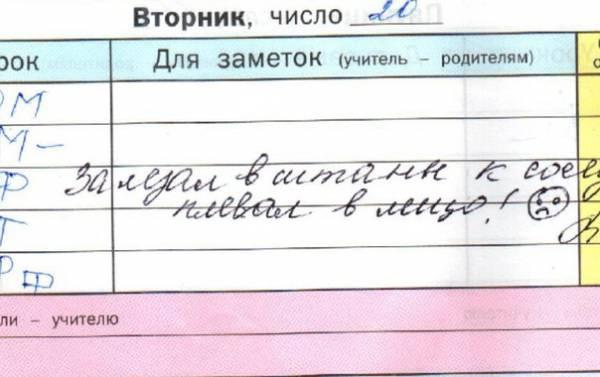 Вторник, число 20
рок Для заметок (учитель – родителям)
М
М –
Ф Залезал в штаны к сосед
Т плевал в лицо!
РФ
ли – учителю